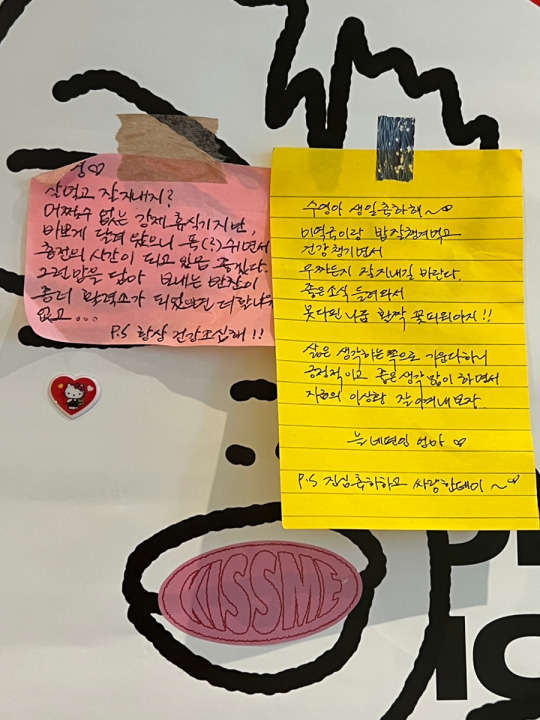 썽♡
잘먹고 잘지내지?
어쩔수 없는 강제 휴식기지만,
바쁘게 달려 왔으니 좀(?)쉬면서
충전의 시간이 되고 있음 좋겠다.
그런 맘을 담아 보내는 반찬이
좀더 활력소가 되었으면 더할나위
없고...
P.S 항상 건강조심해!!
수영아 생일축하해~♡
미역국이랑 밥 잘챙겨먹고
건강챙기면서
우짜든지 잘지내길 바란다.
좋은소식 들려와서
못다핀 나름 활짝 꽃피워야지!!
삶은 생각하는쪽으로 기운다하니
긍정적이고 좋은생각 많이 하면서
지금의 이상황 잘이겨내보자.
늘 네편인 엄마♡
P.S 진심 축하하고 싸랑한데이~♡
KISSME